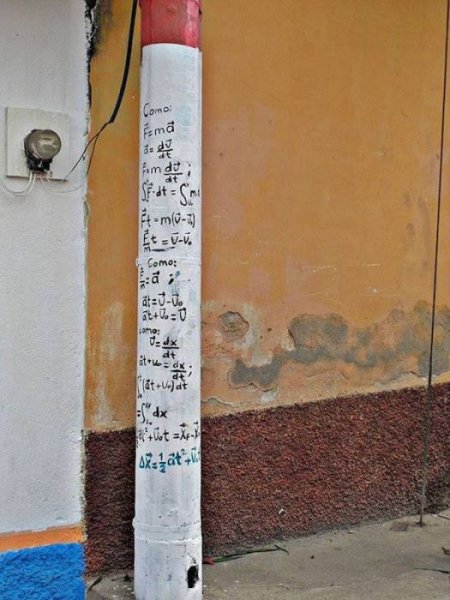 Como:
F⃗=ma⃗
a⃗=dv⃗/dt
F⃗=m dv⃗/dt ;
∫F⃗·dt=∫m
F⃗t=m(v⃗-v⃗₀)
F⃗/m t=v⃗-v⃗₀
Como:
F⃗/m=a⃗ ;
a⃗t=v⃗-v⃗₀
a⃗t+v⃗₀=v⃗
como:
v⃗=dx⃗/dt
a⃗t+v₀=dx⃗/dt ;
∫(a⃗t+v₀)dt
=∫dx
½a⃗t²+v⃗₀t=x⃗f-x⃗
Δx⃗=½a⃗t²+v⃗₀